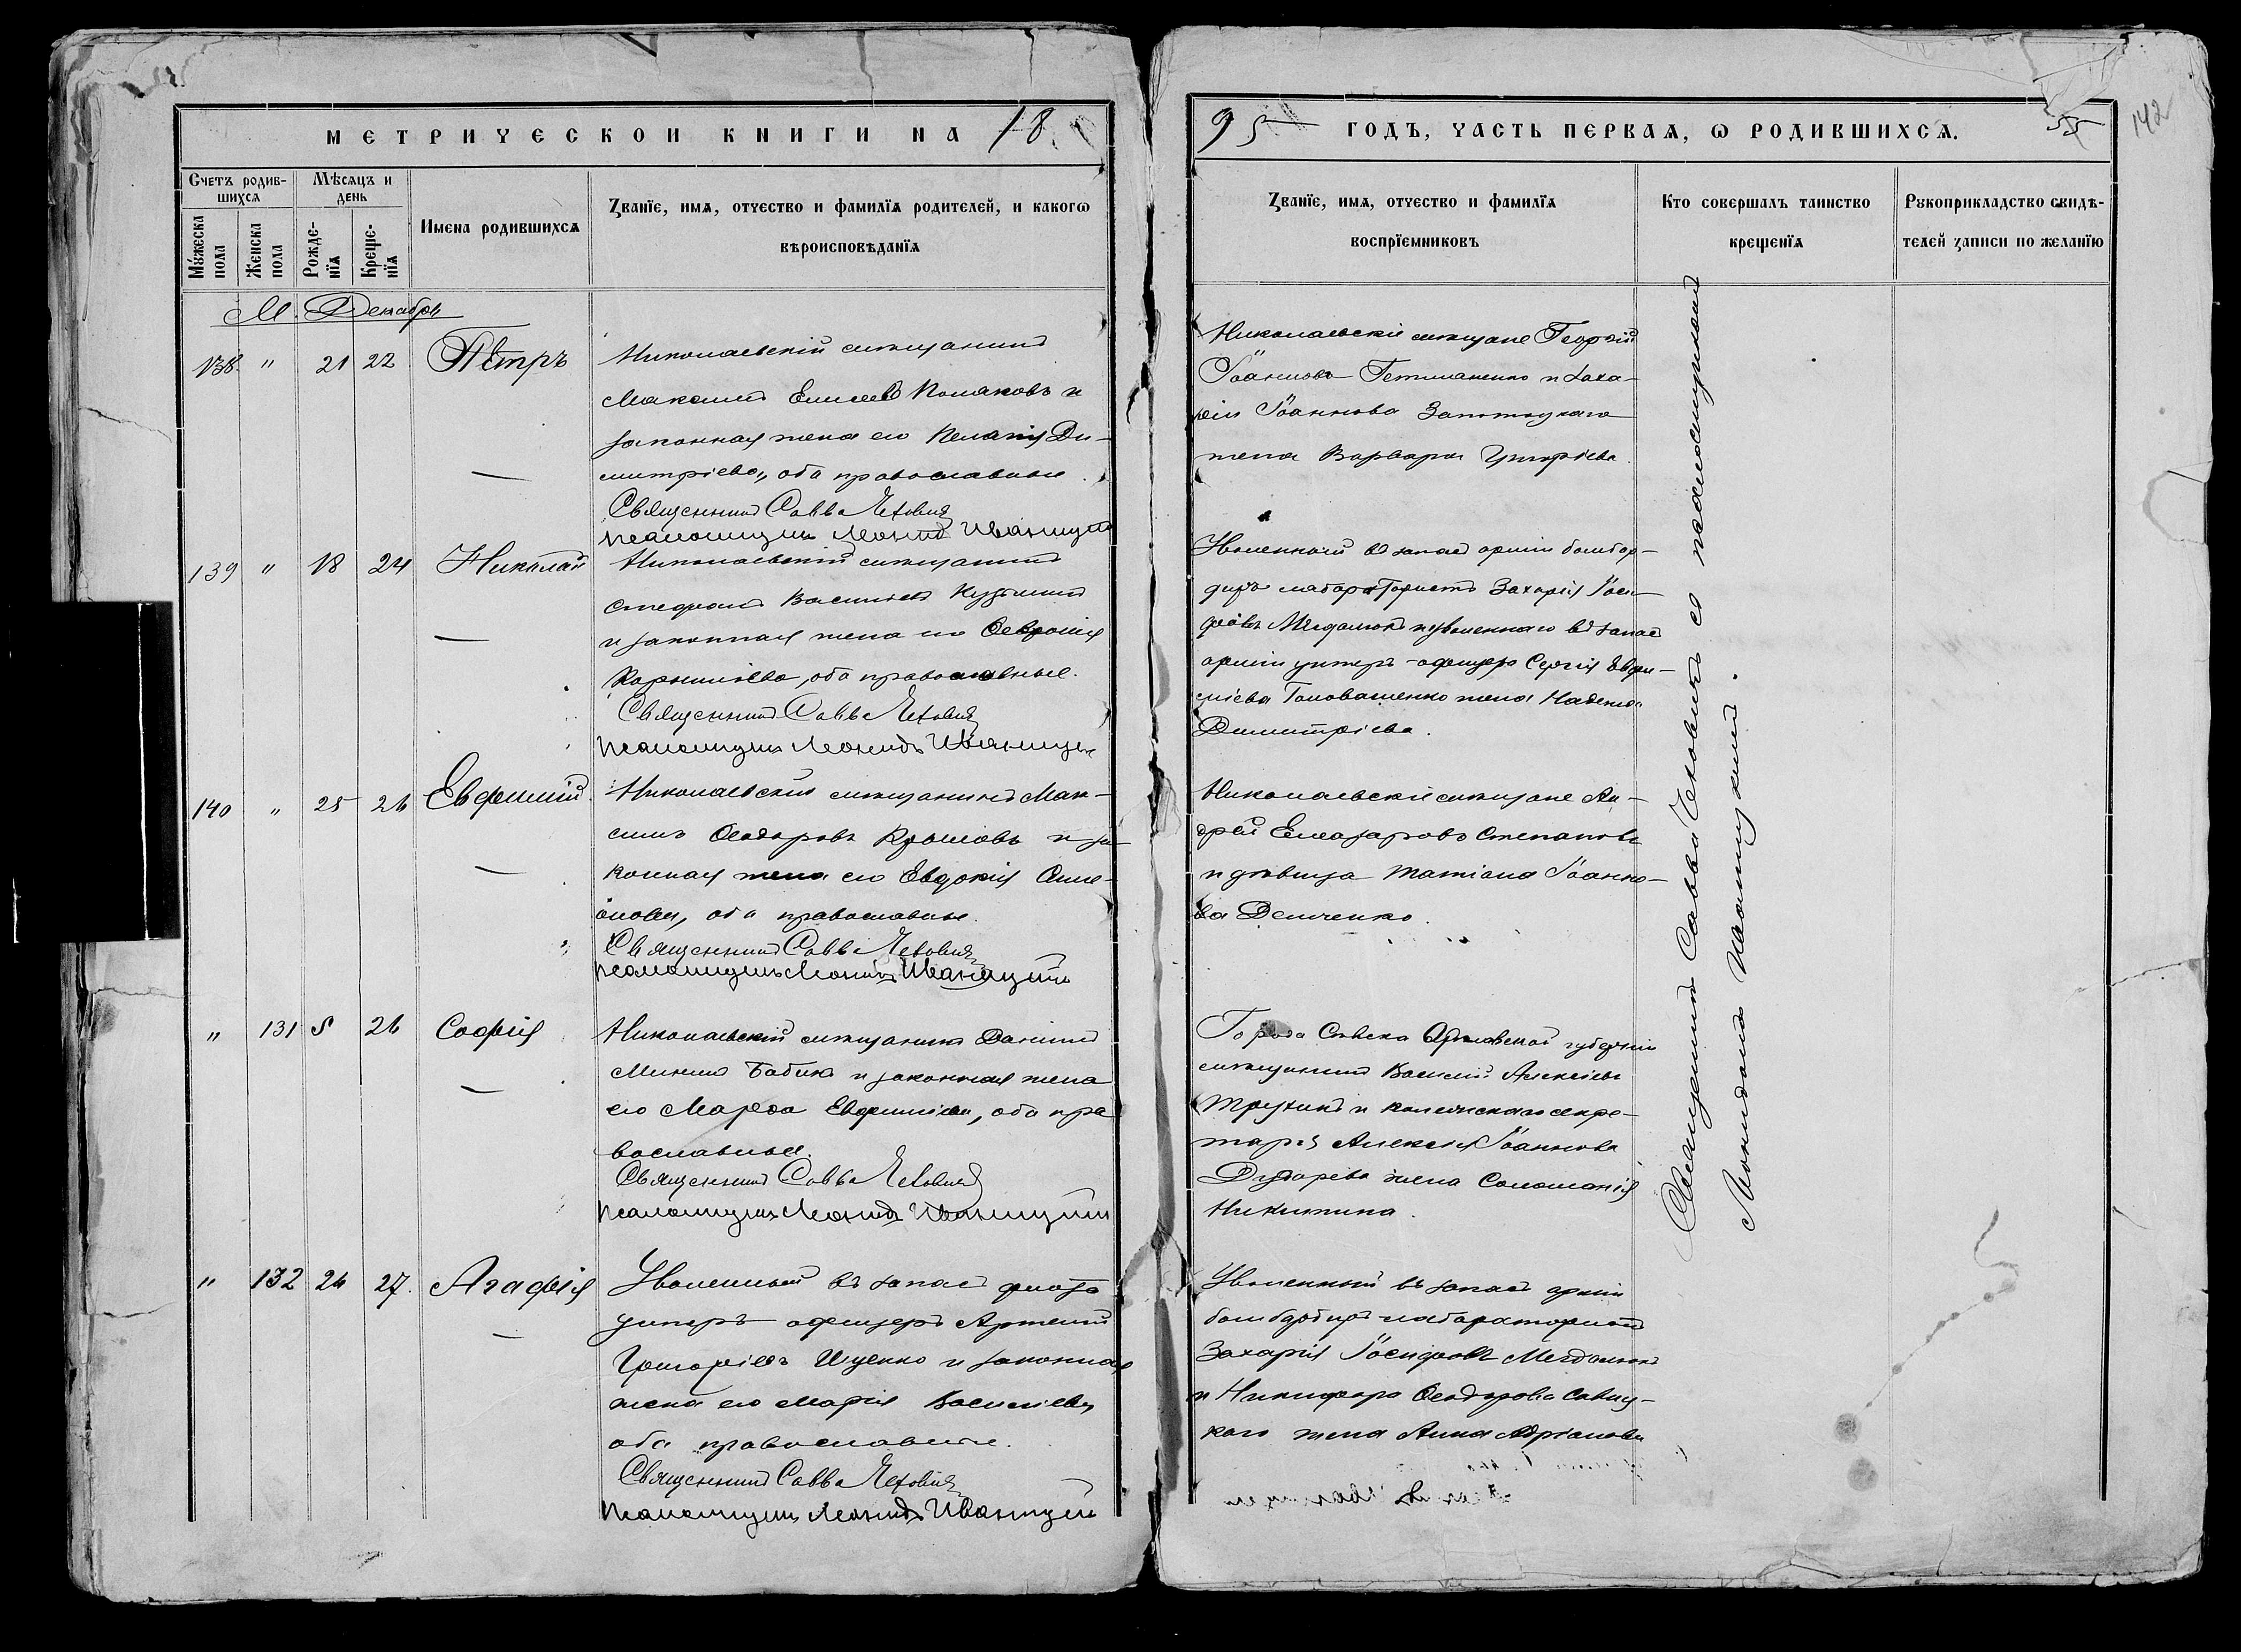 МЕТРИЧЕСКОЙ КНИГИ НА 18
95 ГОДЪ, ЧАСТЬ ПЕРВАЯ, Ѡ РОДИВШИХСЯ.
55
142
Счетъ родив-
шихся
Мѣсяцъ и
день
Мужеска
пола
Женска
пола
Рожде-
нїя
Креще-
нїя
Имена родившихся
Званїе, имя, отчество и фамилїя родителей, и какогѡ
вѣроисповѣданїя
Званїе, имя, отчество и фамилїя
воспрїемниковъ
Кто совершалъ таинство
крещенїя
Рукоприкладство свидѣ-
телей записи по желанїю
М. Декабрь
138 " 21 22 Петръ
Николаевскій мѣщанинъ
Максимъ Елисеевъ и
законная жена его Пелагія Ди-
митріева, оба православные.
Священникъ Савва Чехович
псаломщикъ Леонидъ Иваницкій
Николаевскіе мѣщане Георгій
Іоанновъ Гетманенко и Заха-
рія Іоаннова
жена Варвара Григоріева.
139 " 18 24 Николай
Николаевскій мѣщанинъ
Стефанъ Васильевъ Кузьминъ
и законная жена его Ѳевронія
Корниліева, оба православные.
Священникъ Савва Чехович
псаломщикъ Леонидъ Иваницкій
Уволенный въ запасъ арміи бомбар-
диръ лаборатористъ Захарія Іоси-
фовъ и уволеннаго въ запасъ
арміи унтеръ-офицера Сергія Евфи-
міева Головашенко жена Надежда
Димитріева.
140 " 25 26 Евфимій
Николаевскій мѣщанинъ Мак-
симъ Ѳеодоровъ и за-
конная жена его Евдокія Симе-
онова, оба православные.
Священникъ Савва Чехович
псаломщикъ Леонидъ Иваницкій
Николаевскіе мѣщане Ан-
дрей Елеазаровъ Степановъ
и дѣвица Татіана Іоанно-
ва Демченко.
" 131 5 26 Софія
Николаевскій мѣщанинъ Даніилъ
Мининъ Бабикъ и законная жена
его Марѳа Евфиміева, оба пра-
вославные.
Священникъ Савва Чехович
псаломщикъ Леонидъ Иваницкій
Города Сѣвска Орловской губерніи
мѣщанинъ Василій Алексіевъ
и коллежскаго секре-
таря Алексія Іоаннова
Дударева жена Соломонія
Никитина.
" 132 26 27. Агафія
Уволенный въ запасъ флота
унтеръ-офицеръ Артемій
Григоріевъ Ищенко и законная
жена его Марія Василіева,
оба православные.
Священникъ Савва Чехович
псаломщикъ Леонидъ Иваницкій
Уволенный въ запасъ арміи
бомбардиръ лаборатористъ
Захарія Іосифовъ
и Никифора Ѳеодорова Савиц-
каго жена Анна Адріанова
Священникъ Савва Чеховичъ съ псаломщикомъ
Леонидомъ Иваницкимъ.